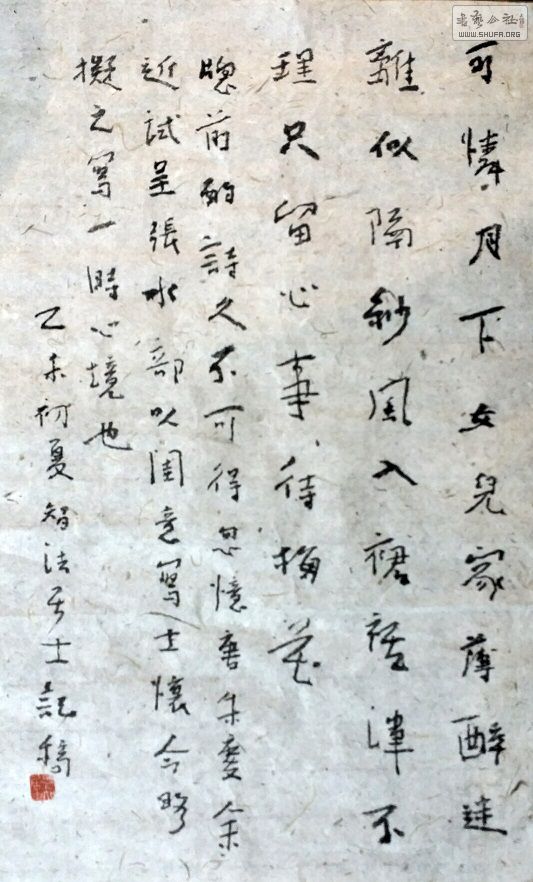 可憐月下女兒家薄醉迷
離似隔紗風入裙裾渾不
理只留心事待梅花
牕前酌詩久不可得忽憶唐朱慶余
近試呈張水部以閨意寫士懷今略
擬之寫一時心境也
乙未初夏智法居士記稿
書藝公社
WWW.SHUFA.ORG